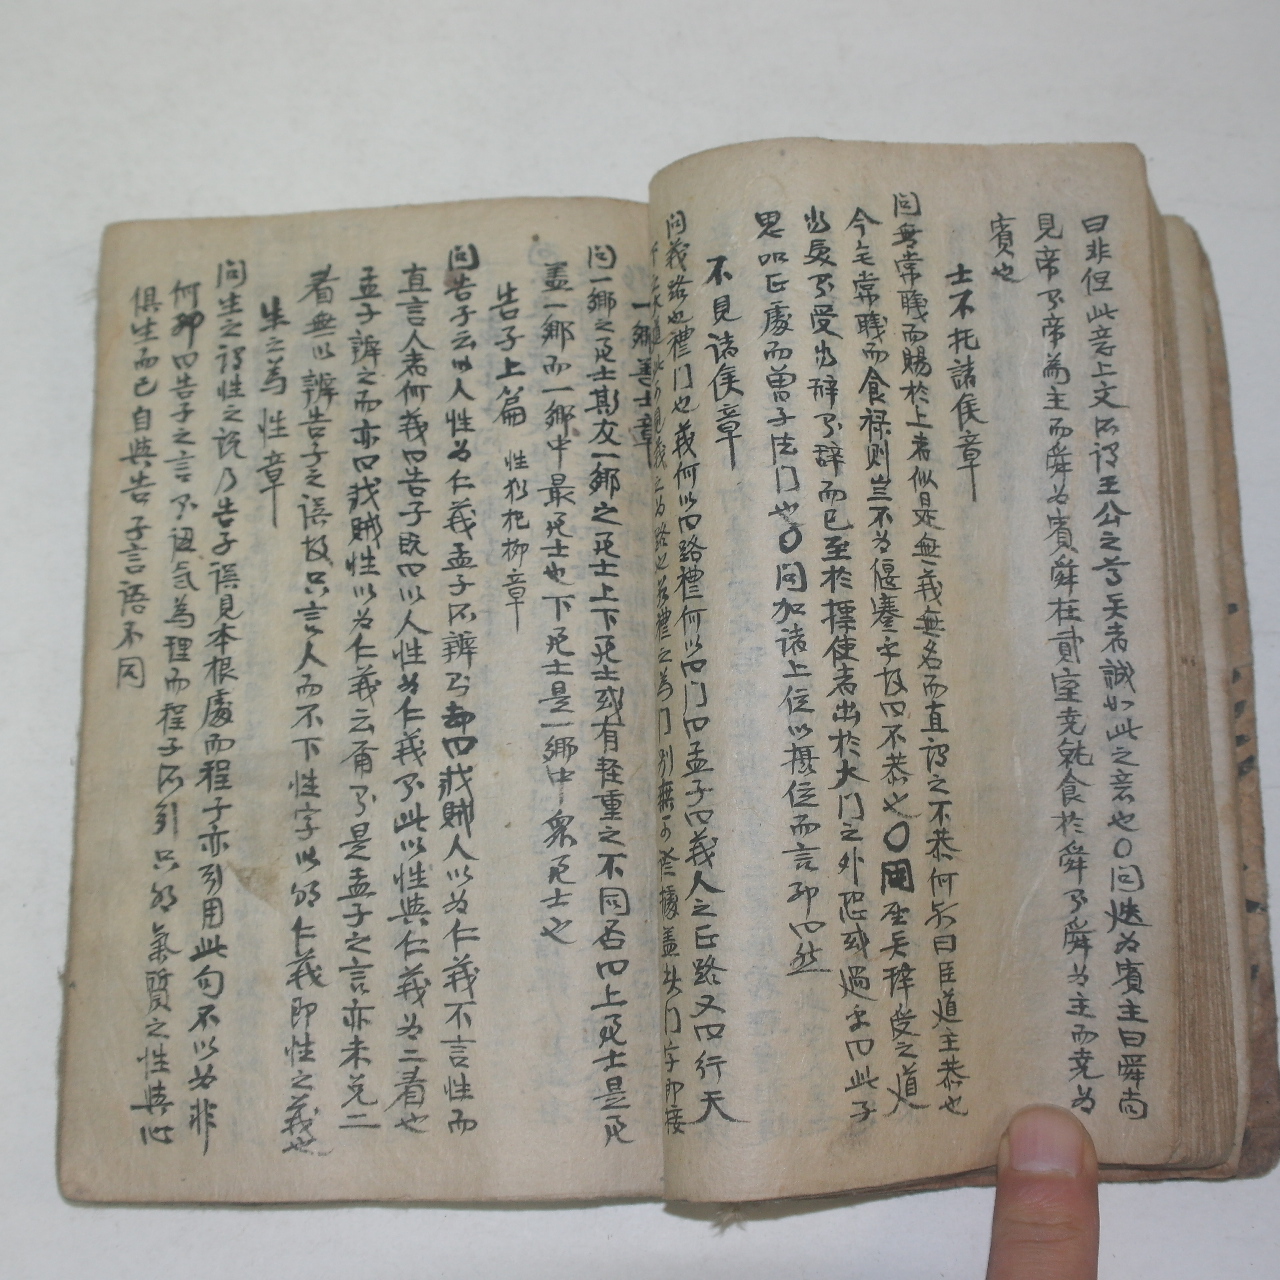 曰非但此章上文所谓王公之尊矣者誠如此之意也〇问迭为賓主曰舜尚
見帝了帝為主而舜为賓舜在貳室堯就食於舜了舜为主而堯为
賓也
士不托諸侯章
问無常職而賜於上者似是無義無名而直谓之不恭何所曰臣道主恭也
今无常職而食禄則岂不为偃蹇乎故曰不恭也〇问 辞受之道
当受了受当辞了辞而已至於摽使者出於大门之外恐或過当曰此子
思叱臣處而曾子法门也〇问加诸上位以摄位而言耶曰然
不見诸侯章
问義路也禮门也義何以曰路禮何以曰门曰孟子曰義人之正路又曰行天
为路也 禮之為门别無可證據盖此门字即接
一鄉善士章
问一鄉之善士斯友一鄉之善士上下善士或有轻重之不同否曰上善士是善
盖一鄉而一鄉中最善士也下善士是一鄉中衆善士也
告子上篇 性犹杞柳章
问告子云以人性为仁義孟子所辨了却曰戕賊人以为仁義不言性而
直言人者何義曰告子既曰以人性为仁義了此以性與仁義为二看也
孟子辨之而亦曰戕賊性以为仁義云甭了是孟子之言亦未免二
看無以辨告子之误故只言人而不下性字以明仁義即性之義也
生之為性章
问生之谓性之说乃告子误見本根處而程子亦引用此句不以为非
何耶曰告子之言了認氣為理而程子所引只明氣質之性與心
俱生而已自與告子言語不同